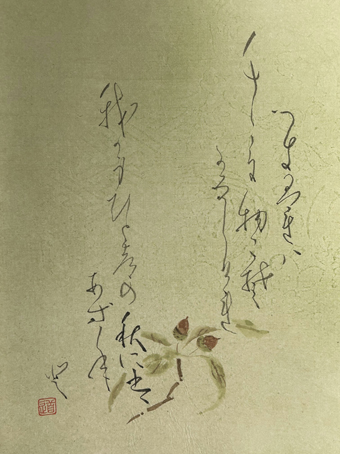 つきみれハ
千ゝに物こそ
かなしけれ
我か身ひとつの
秋には
あらねと